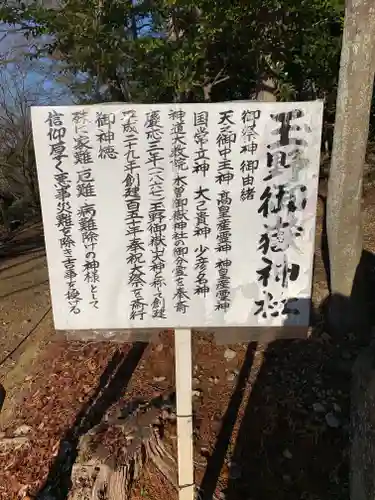 玉野御嶽神社
御祭神 御由緒
天之御中主神 高皇産霊神 神皇産霊神
国常立神 大己貴神 少彦名神
神道大教院 木曽御嶽神社の御分霊を奉斎
慶応三年(一八六七)玉野御嶽山大神を御創建
平成二十九年創建百五十年奉祝大祭を斎行
御神徳
殊に家難 厄難 病難除けの神様として
信仰厚く悪事災難を除き吉事を授る